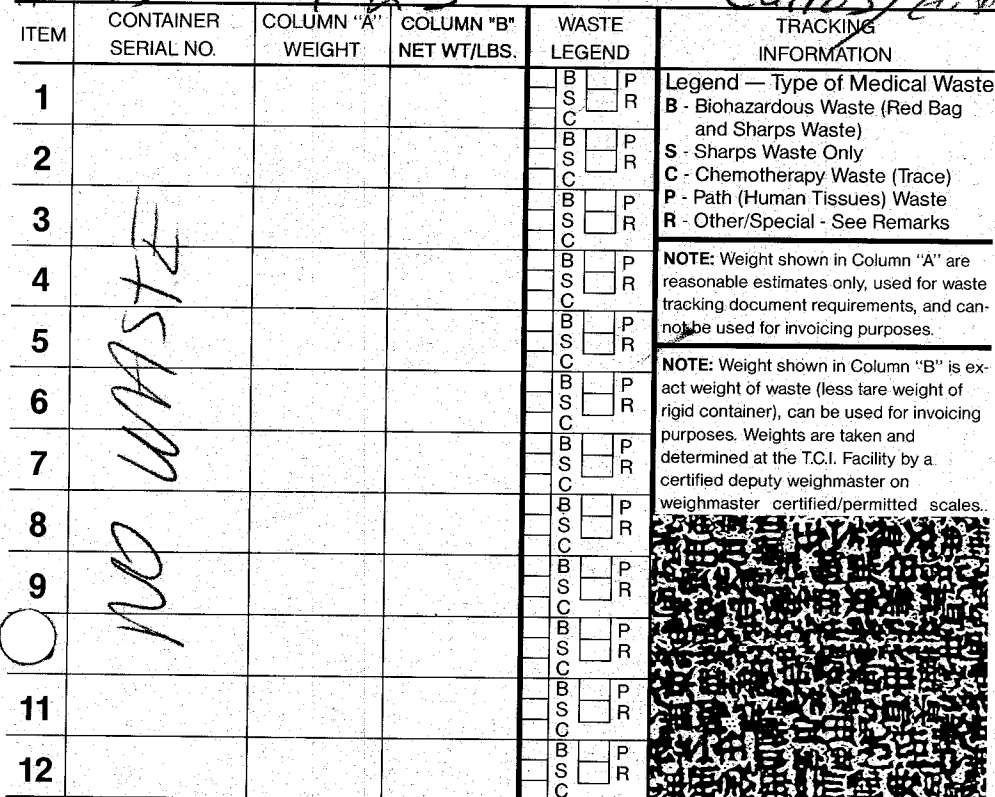 ITEM
CONTAINER
SERIAL NO.
COLUMN "A"
WEIGHT
COLUMN "B"
NET WT/LBS.
WASTE
LEGEND
TRACKING
INFORMATION
1
B P
S R
C
2
B P
S R
C
3
B P
S R
C
4
B P
S R
C
5
B P
S R
C
6
B P
S R
C
7
B P
S R
C
8
B P
S R
C
9
B P
S R
C
B P
S R
C
11
B P
S R
C
12
B P
S R
C
NO WASTE
Legend — Type of Medical Waste
B - Biohazardous Waste (Red Bag
and Sharps Waste)
S - Sharps Waste Only
C - Chemotherapy Waste (Trace)
P - Path (Human Tissues) Waste
R - Other/Special - See Remarks
NOTE: Weight shown in Column "A" are
reasonable estimates only, used for waste
tracking document requirements, and can-
not be used for invoicing purposes.
NOTE: Weight shown in Column "B" is ex-
act weight of waste (less tare weight of
rigid container), can be used for invoicing
purposes. Weights are taken and
determined at the T.C.I. Facility by a
certified deputy weighmaster on
weighmaster certified/permitted scales..